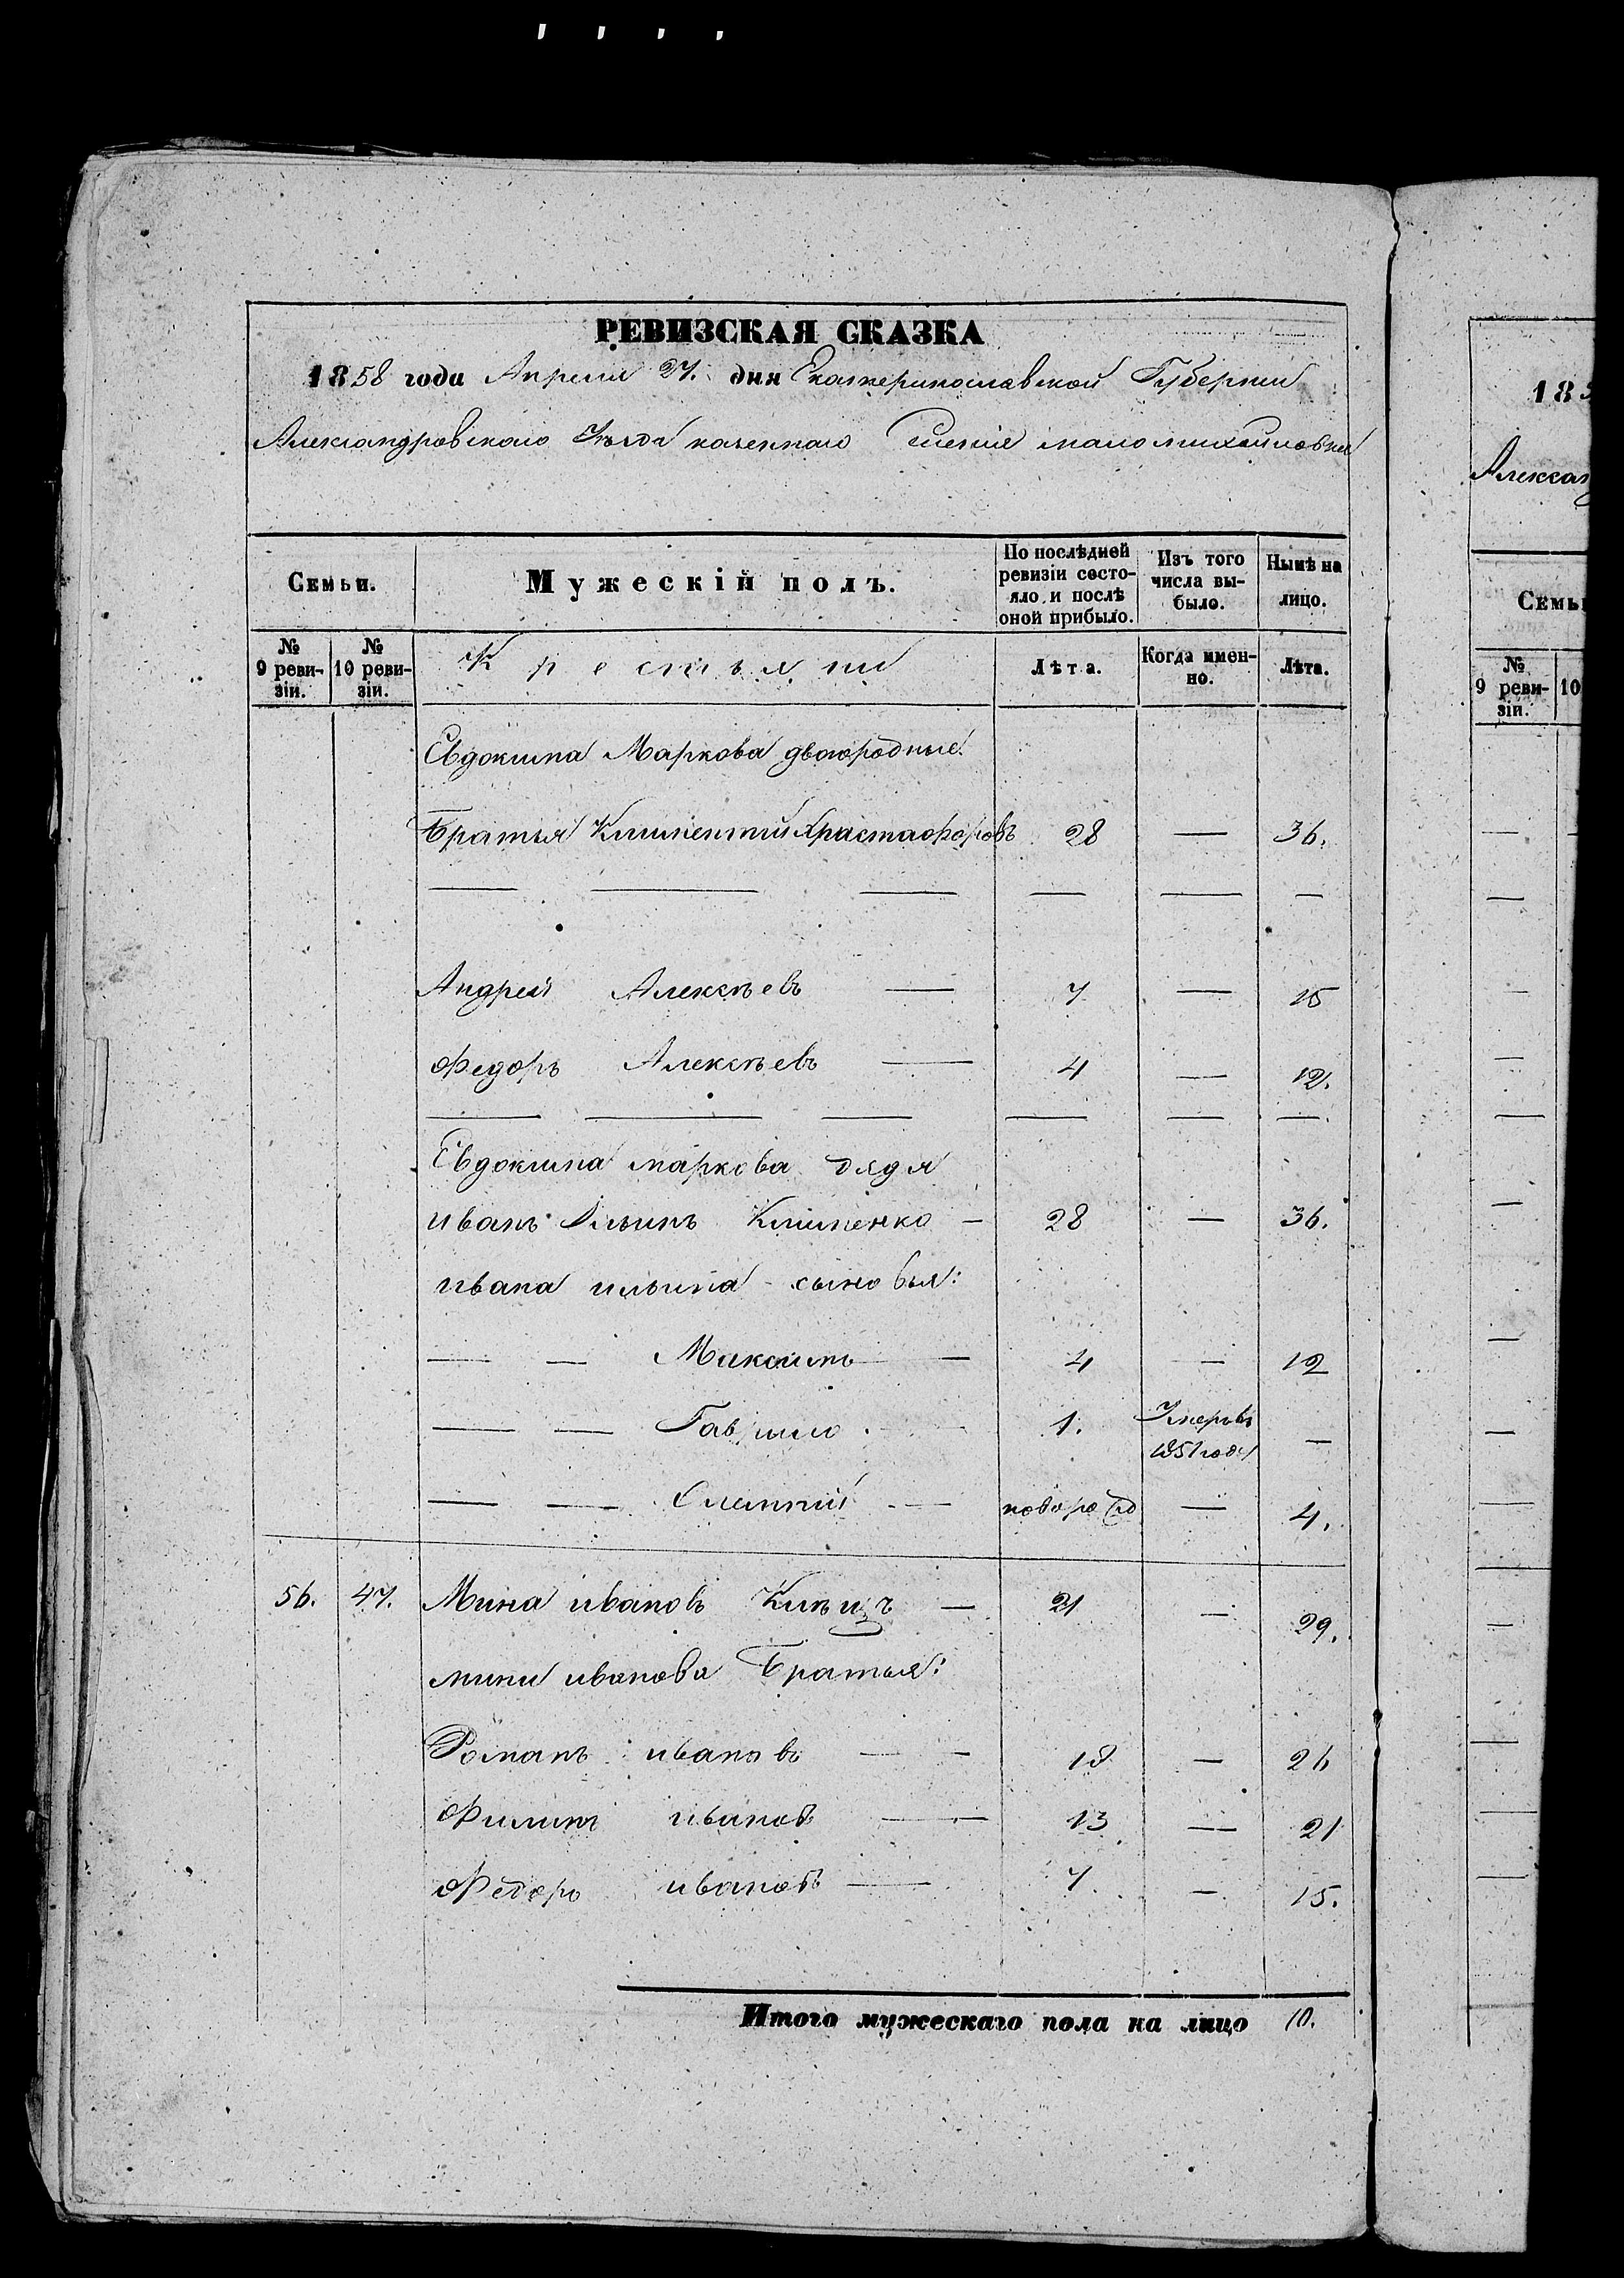 РЕВИЗСКАЯ СКАЗКА
1858 года Апреля 27. дня Екатеринославской Губернии
Александровского Уѣзда казенного Селения маломихайловки
Семьи. Мужескій полъ. По послѣдней ревизіи состояло, и послѣ оной прибыло. Изъ того числа выбыло. Нынѣ на лицо.
№ 9 ревизіи. № 10 ревизіи. Крестьяни Лѣта. Когда именно. Лѣта.
Евдокима Маркова двоюродные
Братья Климентий Христофоровъ 28 — 36.
— — — — — —
Андрей Алексѣевъ — 7 — 15
Федоръ Алексѣевъ — 4 — 12.
— — — — — —
Евдокима маркова дядя
иванъ Ильинъ Клименко — 28 — 36.
ивана ильина сыновья:
— — Максимъ — 4 — 12
— — Гаврило 1. Умеръ въ 1851 годе —
— — — новорожд — 4.
56. 47. Мина ивановъ — 21 — 29.
мини иванова Братья:
Романъ ивановъ — — 18 — 26
Филипъ ивановъ — 13 — 21
Федоръ ивановъ — 7 — 15.
Итого мужескаго пола на лицо 10.
183
Алексан
Семьи
№ 9 ревизіи. 10